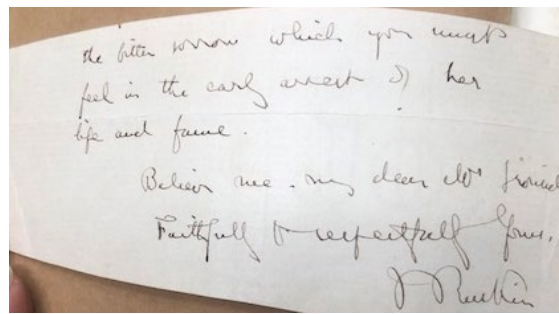 the bitter sorrow which you must
feel in the early arrest of her
life and fame.
Believe me. my dear Mr
Faithfully & respectfully Yours,
J Ruskin